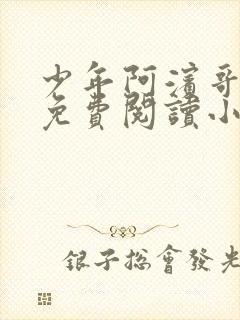 少年阿濱哥
免費閱讀小
銀子總會發光